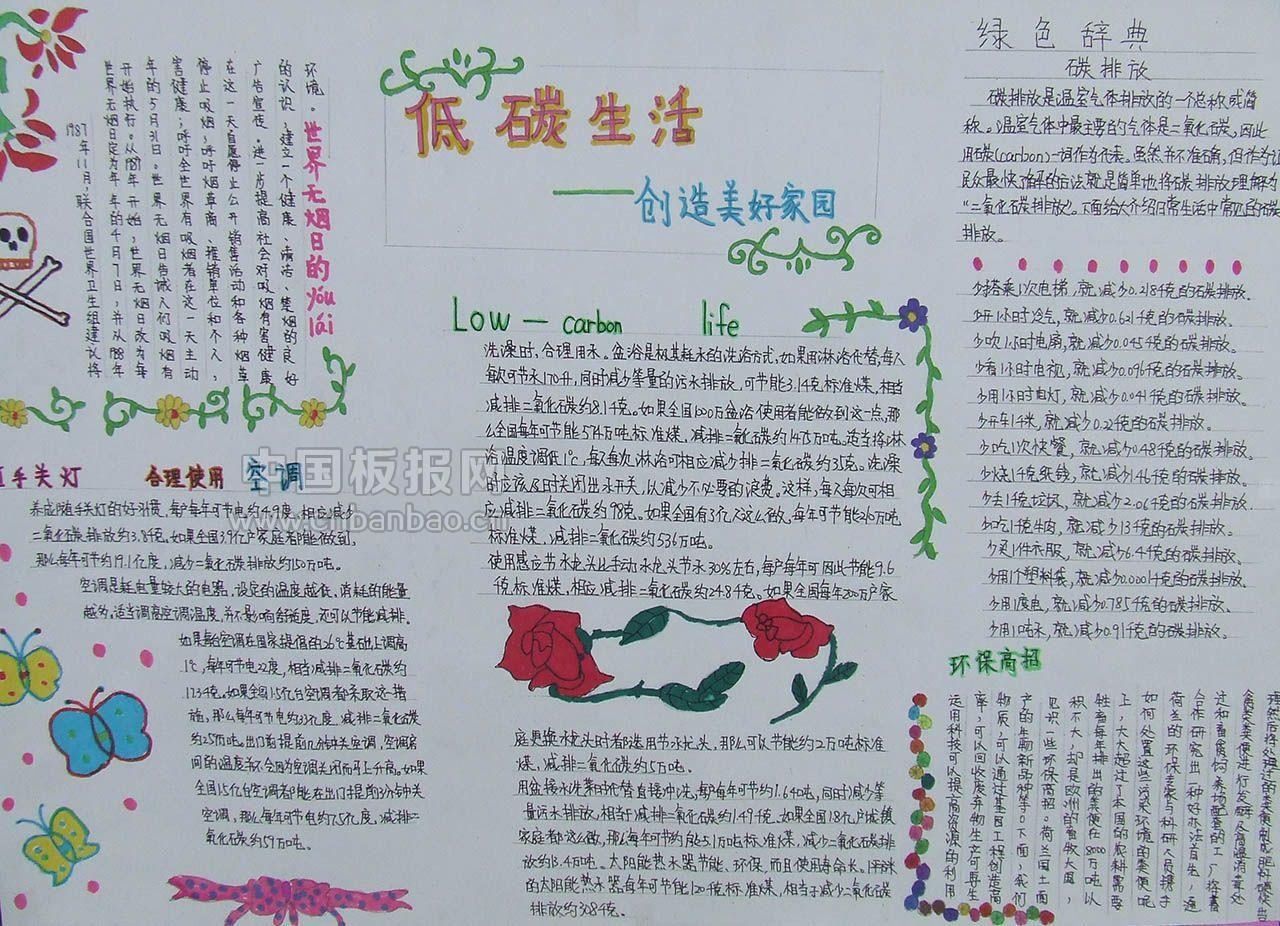 低碳生活
——创造美好家园
世界无烟日的yóu lái
1987年11月,联合国世界卫生组建议将
世界无烟日定为年年的4月7日,并从1988年
开始执行。从1989年开始,世界无烟日改为每
年的5月31日。世界无烟日告诫人们吸烟有
害健康;呼吁全世界有吸烟者在这一天主动
停止吸烟;呼吁烟草商、推销单位和个人,
在这一天自愿停止公开销售活动和各种烟草
广告宣传。进一步提高社会对吸烟有害健康
的认识,建立一个健康、清洁、无烟的良好
环境。
手关灯
养成随手关灯的好习惯,每户每年可节电约4.9度,相应减少
二氧化碳排放约3.8千克。如果全国3.9亿户家庭都能做到,
那么每年可节约19.1亿度,减少二氧化碳排放约150万吨。
合理使用 空调
空调是耗电量较大的电器,设定的温度越低,消耗的能量
越为,适当调高空调温度,并不影响舒适度,还可以节能减排。
如果每台空调在国家提倡的26℃基础上调高
1℃,每年可节电22度,相当减排二氧化碳约
千克。如果全国1.5亿台空调都采取这一措
施,那么每年可节电约33亿度,减排二氧化碳
约万吨。出门前提前几分钟关空调,空调房
间的温度并不会因为空调关闭而马上升高。如果
全国1.5亿台空调都能在出门提前3分钟关
空调,那么每年可节电约7.5亿度,减排二
氧化碳约59万吨。
Low — carbon life
洗澡时,合理用水。盆浴是极其耗水的洗浴方式,如果用淋浴代替,每人
每次可节水170升,同时减少等量的污水排放,可节能3.14克标准煤,相当
减排二氧化碳约8.1千克。如果全国1000万盆浴使用者能做到这一点,那
么全国每年可节能574万吨标准煤,减排二氧化碳约1475万吨。适当将淋
浴温度调低1℃,每人每次淋浴可相应减少排二氧化碳约35克。洗澡
时应该及时关闭出水开关,以减少不必要的浪费。这样,每人每次可相
应减排二氧化碳约98克。如果全国有3亿人这么做,每年可节能2.6万吨
标准煤,减排二氧化碳约536万吨。
使用感应节水龙头比手动水龙头节水30%左右,每户每年可因以节能9.6
千克标准煤,相应减排二氧化碳约24.84克。如果全国每年200万户家
庭更换水龙头时都选用节水龙头,那么可以节能约2万吨标准
煤,减排二氧化碳约5万吨。
用盆接水洗菜时代替直接冲洗,每户每年可节约1.640吨,同时减少等
量污水排放,相当于减排二氧化碳约1.49千克。如果全国1.8亿户城镇
家庭都这么做,那么每年可节约能5.1万吨标准煤,减少二氧化碳排
放约13.4万吨。太阳能热水器节能、环保,而且使用寿命长。1平方米
的太阳能热水器每年可节能120千克标准煤,相当于减少二氧化碳
排放约308千克。
绿色辞典
碳排放
碳排放是温室气体排放的一个总称或简
称。温室气体中最主要的气体是二氧化碳,因此
用碳(carbon)一词作为代表。虽然并不准确,但作为让
民众最快了解的方法就是简单地将碳排放理解为
“二氧化碳排放”。下面给大介绍日常生活中常见的碳
排放。
少搭乘1次电梯,就减少0.218千克的碳排放。
少开1小时冷气,就减少0.621千克的碳排放。
少吹1小时电扇,就减少0.045千克的碳排放。
少看1小时电视机,就减少0.096千克的碳排放。
少用1小时电灯,就减少0.041千克的碳排放。
少开车1千米,就减少0.2千克的碳排放。
少吃1次快餐,就减少0.48千克的碳排放。
少烧1千克纸钱,就减少1.46千克的碳排放。
少丢1千克垃圾,就减少2.06千克的碳排放。
少吃1千克牛肉,就减少13千克的碳排放。
少买1件衣服,就减少6.4千克的碳排放。
少用1个塑料袋,就减少0.0001千克的碳排放。
少用1度电,就减少0.785千克的碳排放。
少用1吨水,就减少0.91千克的碳排放。
环保高招
运用科技可以提高资源的利用
率,可以回收废弃物生产可再生
物质,可以通过基因工程创造高
产的生物新品种等。下面,我们
见识一些环保高招。荷兰国土面
积不大,却是欧洲的畜牧大国,
牲畜每年排出的粪便在8000万吨以
上,大大超过了本国的农料需要
如何处置这些污染环境的粪便呢
荷兰的环保专家与科研人员携手
合作研究出一种好办法首先,通
过和畜禽饲养场配套的工厂将畜
禽粪便进行发酵
中国板报网
www.cnbanbao.cn